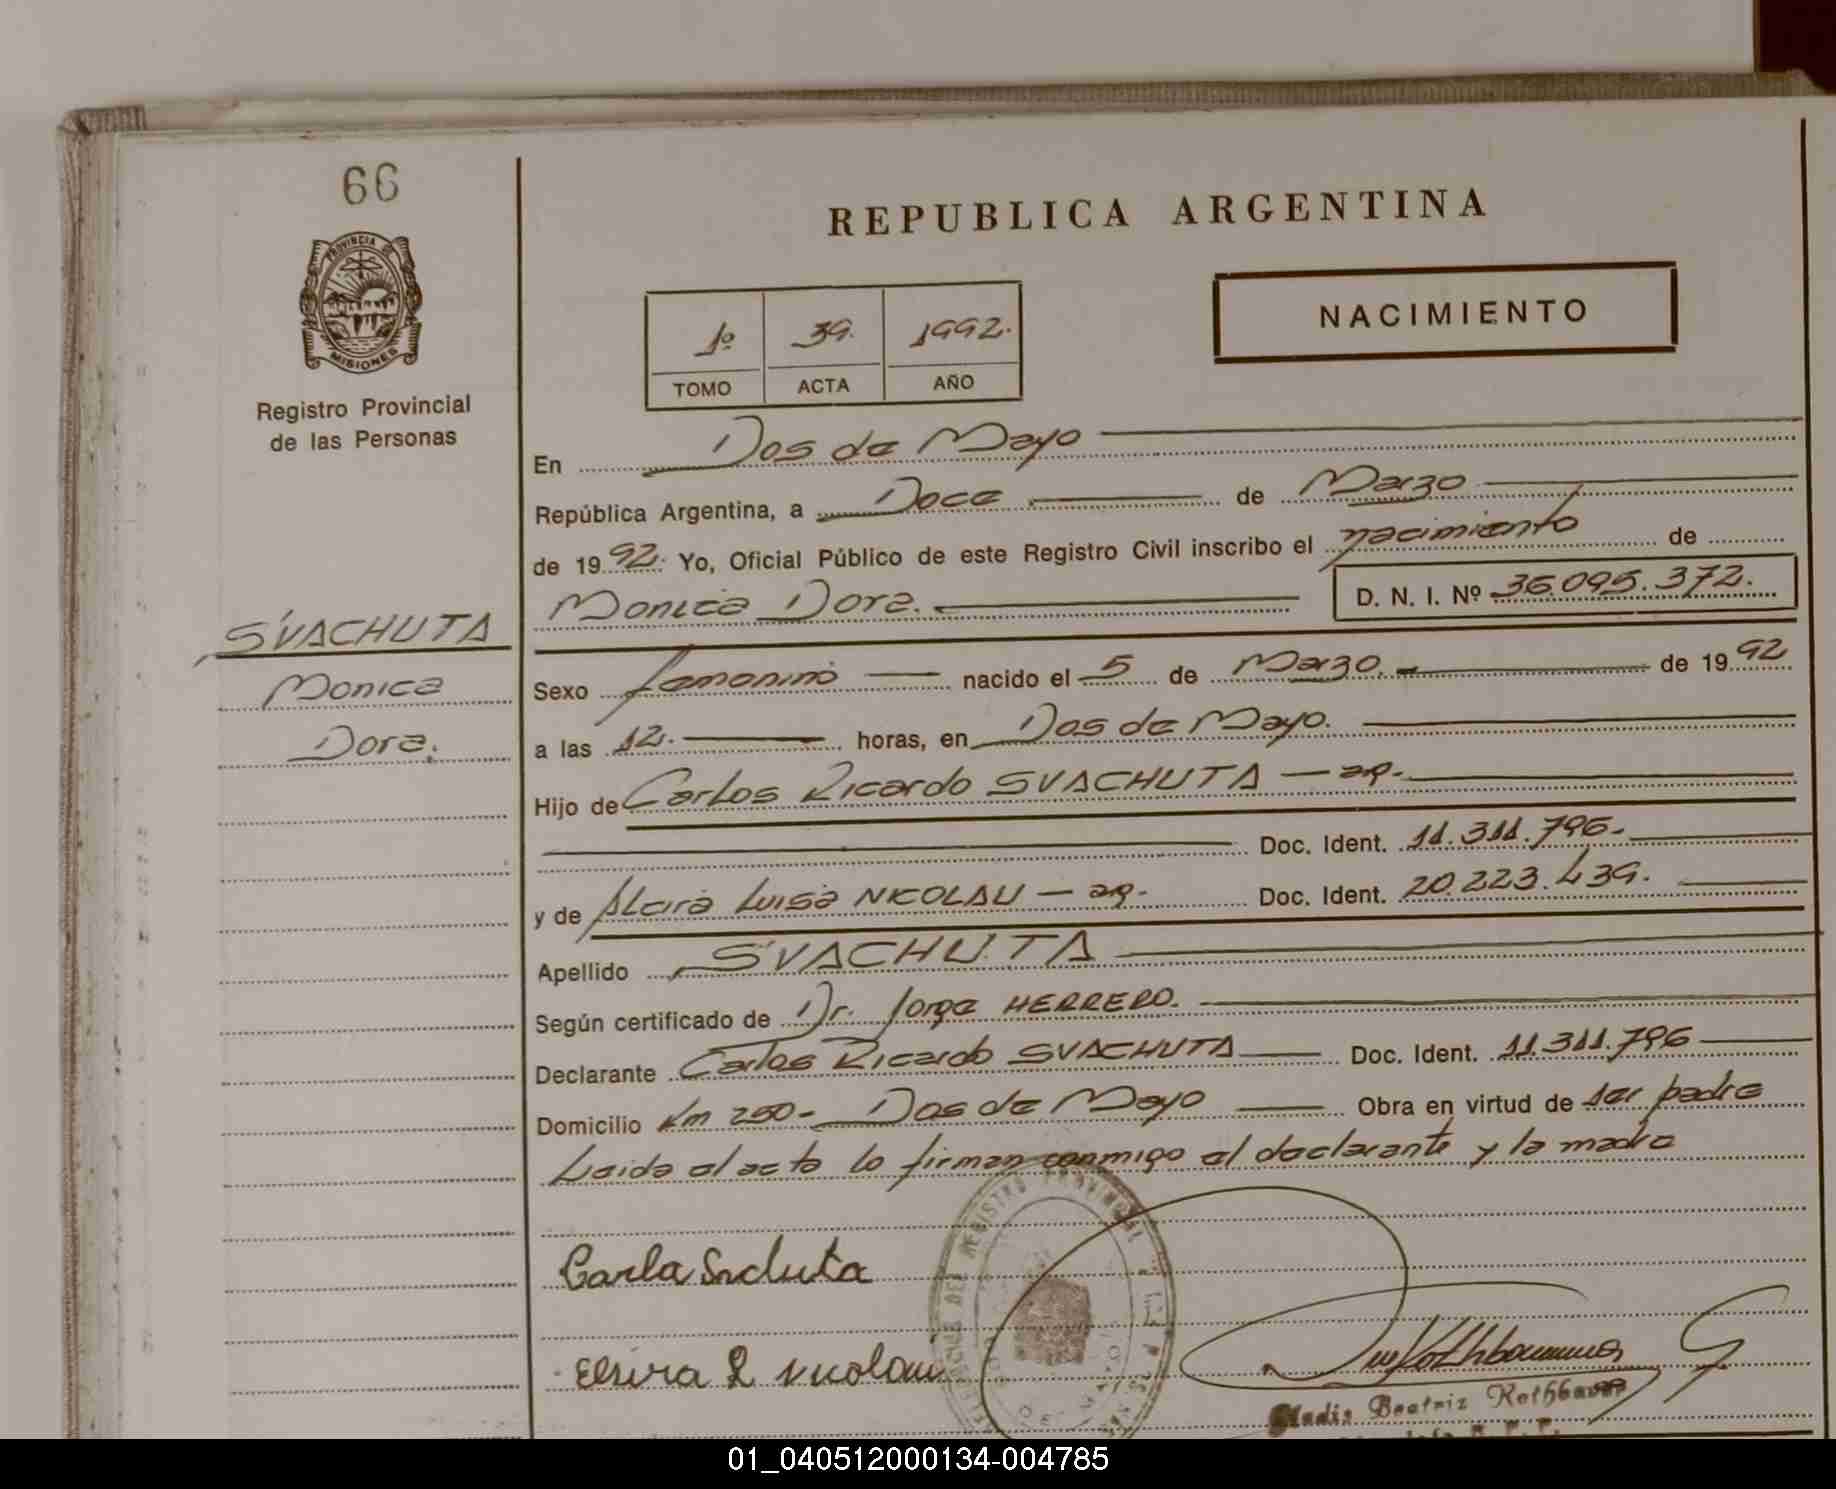 66
PROVINCIA DE
MISIONES
Registro Provincial
de las Personas
SVACHUTA
Monica
Dora.
REPUBLICA ARGENTINA
1º 39. 1992.
TOMO ACTA AÑO
NACIMIENTO
En Dos de Mayo
República Argentina, a Doce de Marzo
de 1992. Yo, Oficial Público de este Registro Civil inscribo el nacimiento de
Monica Dora. D. N. I. Nº 36.095.372.
Sexo femenino nacido el 5 de Marzo. de 1992
a las 12. horas, en Dos de Mayo.
Hijo de Carlos Ricardo SVACHUTA — ag.
Doc. Ident. 11.311.796.
y de Luisa NICOLAU — ag. Doc. Ident. 20.223.439.
Apellido SVACHUTA
Según certificado de Dr. Jorge HERRERO.
Declarante Carlos Ricardo SVACHUTA Doc. Ident. 11.311.796
Domicilio Km 250 - Dos de Mayo Obra en virtud de ser padre
Leida el acta lo firman conmigo el declarante y la madre
DEL REGISTRO PROVINCIAL
Beatriz Rothbauer
01_040512000134-004785